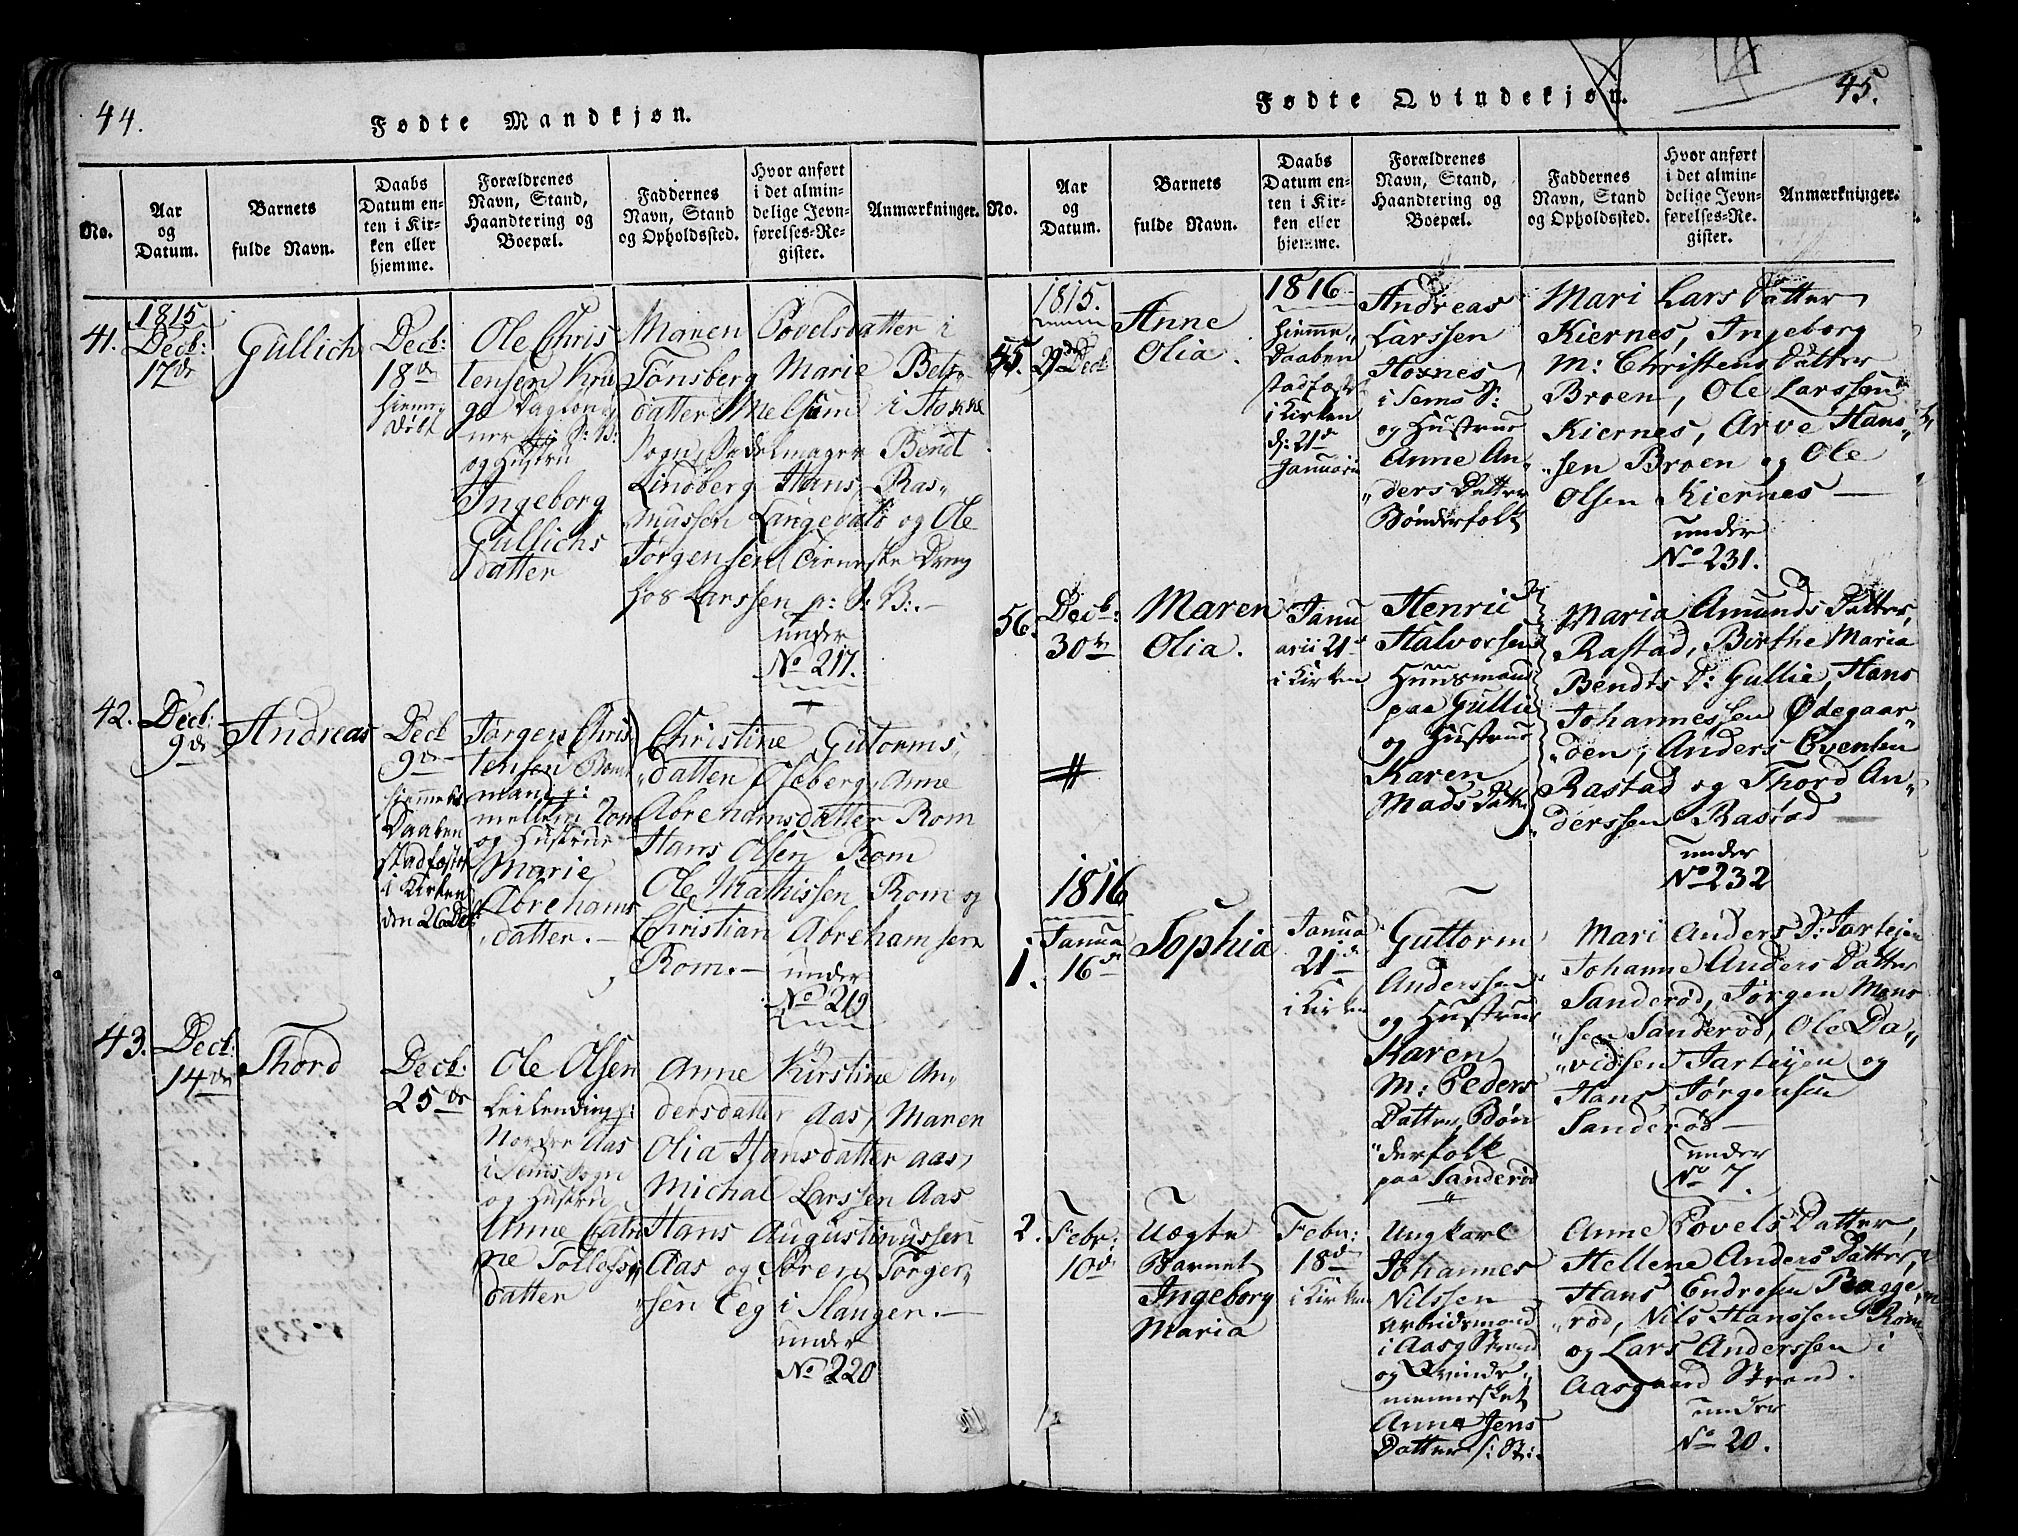 44.
Fødte Mandkjøn.
No.
Aar
og
Datum.
Barnets
fulde Navn.
Daabs
Datum en-
ten i Kir-
ken eller
hjemme.
Forældrenes
Navn, Stand,
Haandtering og
Boepæl.
Faddernes
Navn, Stand
og Opholdssted.
Hvor anført
i det almin-
delige Jevn-
førelses-Re-
gister.
Anmærkninger.
1815
41.
Decb:
17de
Gullich
Decb:
18de
hjemme
døbt
Ole Chris
tensen
og Hustru
Ingeborg
Gullichs
datter
Maren Povelsdatter i
Tønsberg Marie
datter Melsum i Stokke
Sogn, Sadelmager Bend
Lindberg Hans Ras„
mussen og Ole
Jørgensen
hos Larssen p: S: B:.—
under
No 217.
42.
Decb:
9de
Andreas
Decb
9de
hjemme
Daaben
stadfæstet
i Kirken
den 26 Dec
Jørgen Chris
tensen
mand p:
mellem Rom
og Hustrue
Marie
Abrehams
datter.—
Christine Gutorms„
„datter Oseberg, Anne
Abrehamsdatter Rom
Hans Olsen Rom
Ole Mathissen Rom og
Christian Abrehamsen
Rom.—
under
No 219
43.
Decb:
14de
Thord
Decb:
25de
Ole Olsen
Leilending p:
Norder Aas
i Sems Sogn
og Hustru
Anne Catri
ne Tollofs„
datter
Anne Kirstine An„
dersdatter Aas, Maren
Olia Hansdatter Aas,
Michal Larssen Aas
Hans Augustinussen
Aas og Søren Jørgen„
„sen Eeg i Slangen.—
under
No 220
45.
Fødte Qvindekjøn.
No.
Aar
og
Datum.
Barnets
fulde Navn.
Daabs
Datum en-
ten i Kir-
ken eller
hjemme.
Forældrenes
Navn, Stand,
Haandtering og
Boepæl.
Faddernes
Navn, Stand
og Opholdssted.
Hvor anført
i det almin-
delige Jevn-
førelses-Re-
gister.
Anmærkninger.
1815.
Decb
Anne
Olia.
1816
hjemme„
Daaben
stadfæst
i Kirken
d: 21de
Januarii
Andreas
Larssen
Hoxnes
i Sems S:
og Hustrue
Anne An„
„ders Datter
Bønderfolk
Mari Lars Datter
Kiernes, Ingeborg
M: Christens Datter
Broen, Ole Larssen
Kiernes, Arve Hans„
„sen Broen og Ole
Olsen Kiernes —
under
No 231.
56.
Decb:
30te
Maren
Olia.
Janu
arii 21de
i Kirken
Henric
Halvorsen
Huusmand
paa Gullie
og Hustrue
Karen
Mads Datter
Maria Amunds Datter,
Rastad, Birthe Maria
Bendts D: Gullie, Hans
Johannessen Ødegaar„
„den, Anders Evensen
Rastad og Thord An„
„derssen Rastad
under
No 232
1816
1.
Janua
16de
Sophia
Janua
21de
i Kirken
Guttorm
Anderssen
og Hustrue
Karen
M: Peders
Datter, Bøn
„derfolk
paa Sanderød
Mari Anders D: Jarteyen
Johanne Anders Datter
Sanderød, Jørgen Mons
„sen Sanderød, Ole Da„
„vidsen Jarteyen og
Hans Jørgensen
Sanderød—
under
No 7.
2.
Febr:
10de
Uægte
Barnet
Ingeborg
Maria
Febr:
18de
i Kirken
Ungkarl
Johannes
Nilssen
Arbeidsmand
i Aasg Strand
og Qvinde„
mennesket
Anne Jens
Datter
Anne Povels Datter,
Hellene Anders Datter,
Hans Endresen Bagge„
„rød, Nils Hanssen Rom
og Lars Anderssen i
Aasgaard Strand.
under
No 20.